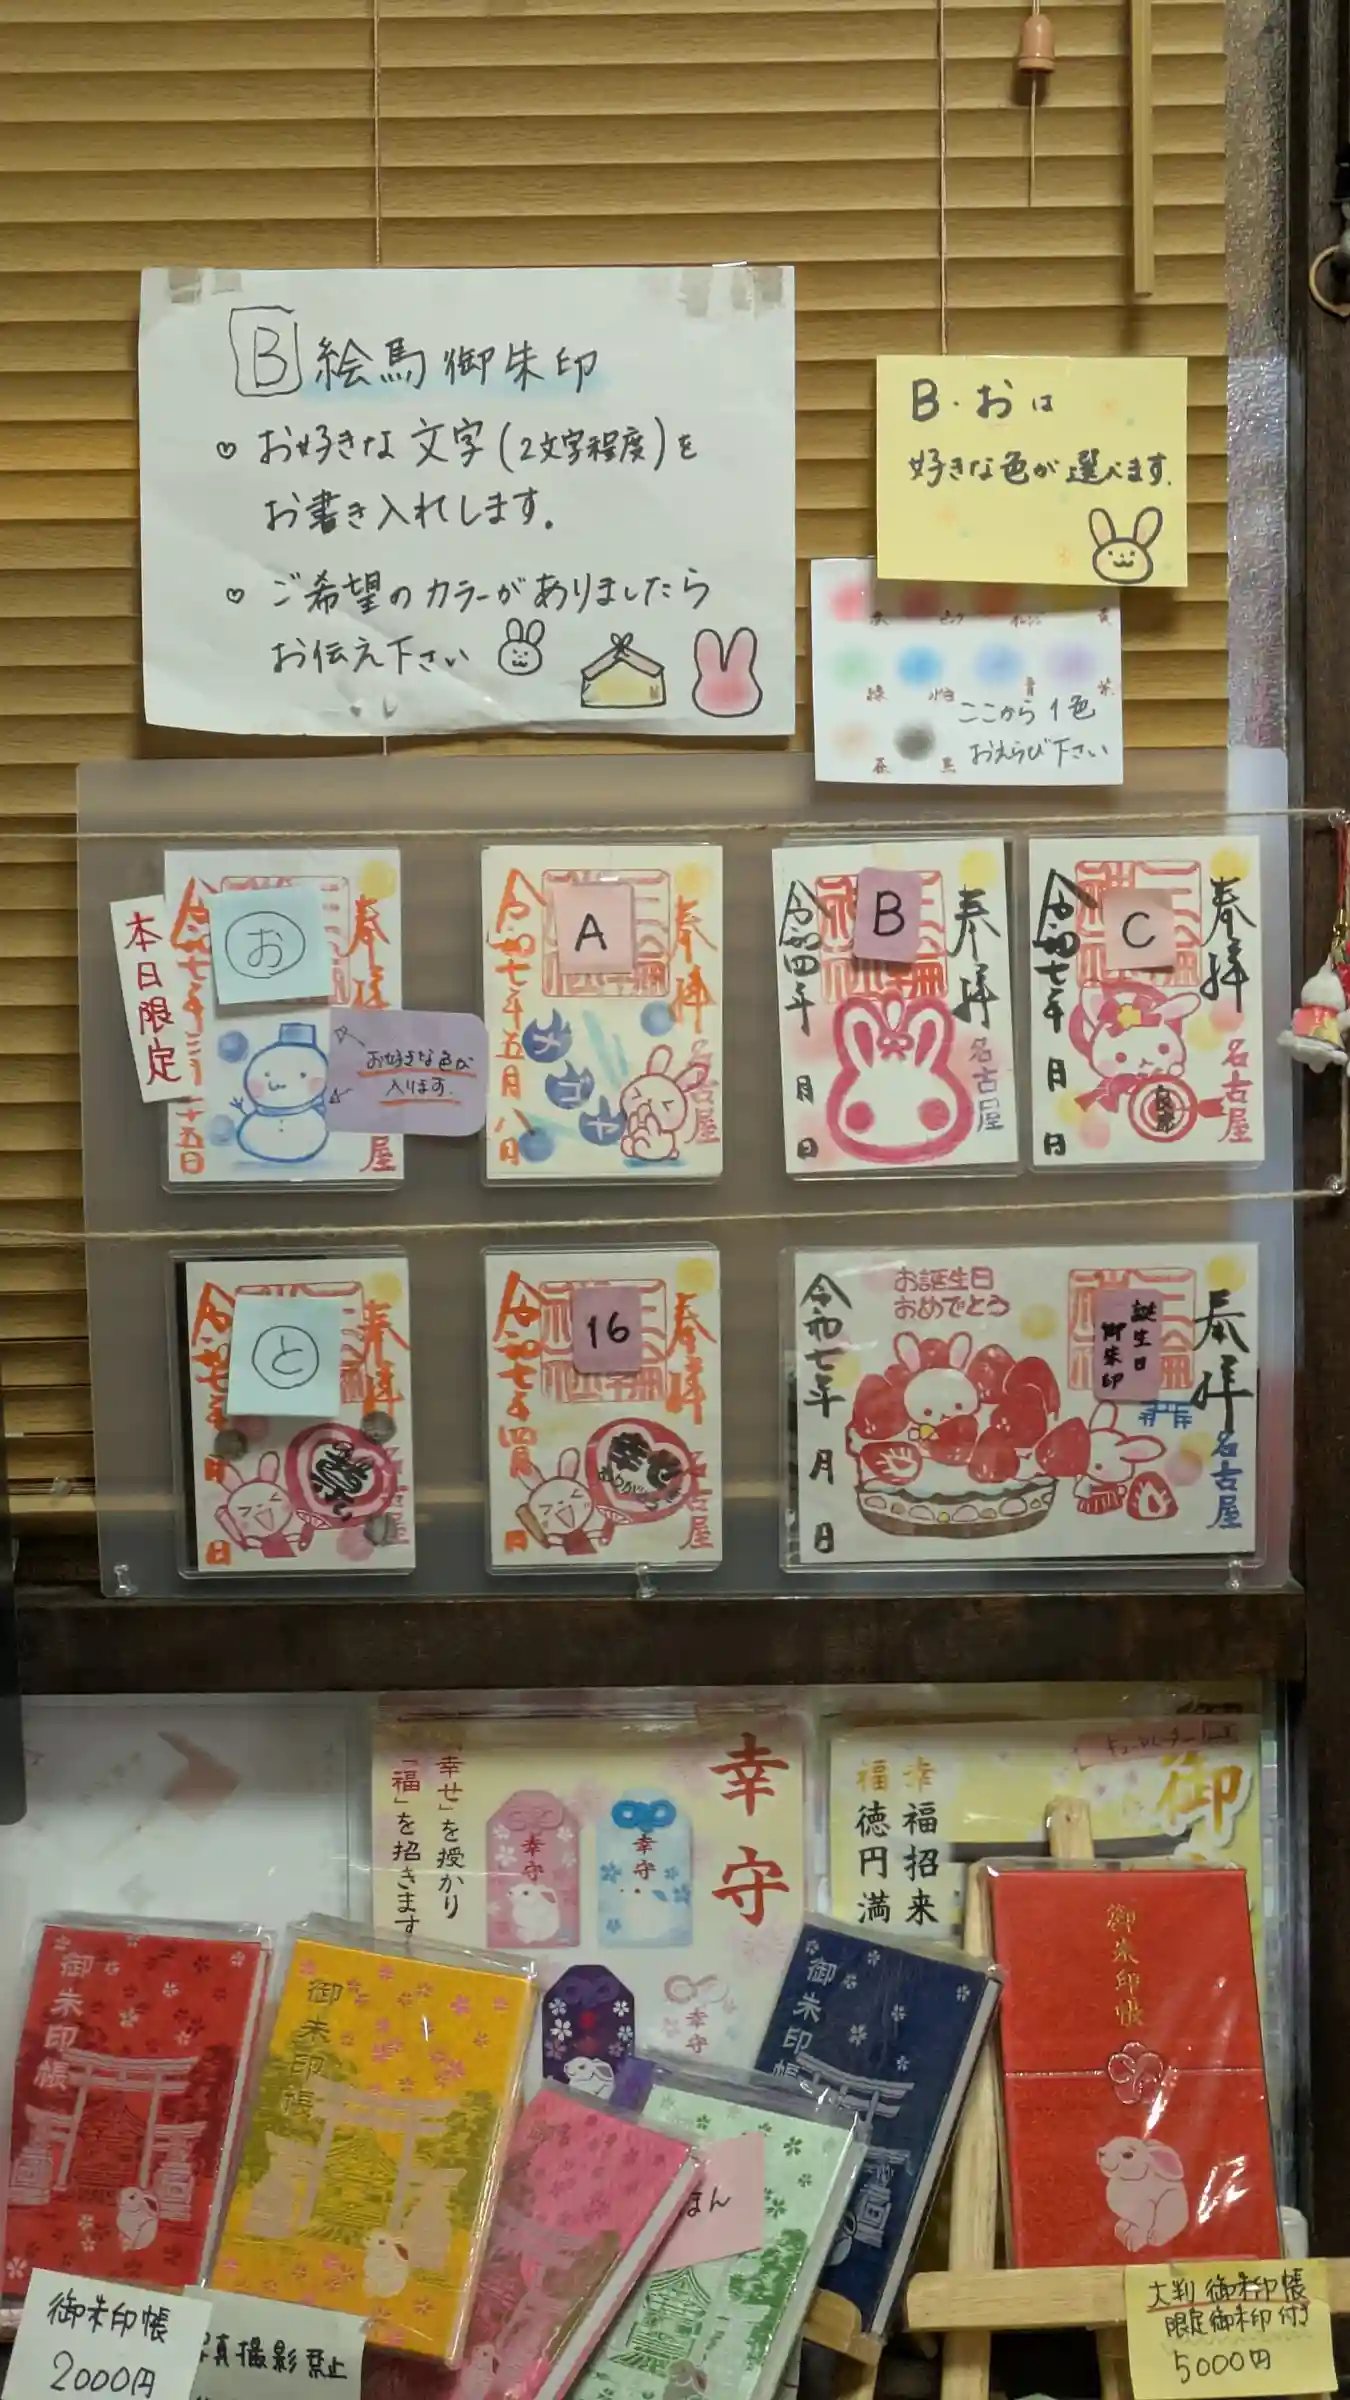 B 絵馬御朱印
♡ お好きな文字(2文字程度)を
お書き入れします。
♡ ご希望のカラーがありましたら
お伝え下さい
B・おは
好きな色が選べます.
赤 ピンク オレンジ 黄
緑 水色 青 紫
茶 黒
ここから1色
おえらび下さい
本日限定
お
奉拝
お好きな色が
入ります.
屋
A
奉拝
名古屋
メゴヤ
令和七年五月八日
B
奉拝
名古屋
令和四年 月 日
C
奉拝
名古屋
令和七年 月 日
と
奉拝
日
16
奉拝
名古屋
幸せ
ありがとう
令和七年四月 日
奉拝
誕生日
御朱印
名古屋
お誕生日
おめでとう
令和七年 月 日
幸守
「幸せ」を授かり
「福」を招きます
幸守
幸守
幸守
御
幸福招来
福徳円満
御朱印帳
御朱印帳
御朱印帳
御朱印帳
御朱印帳
2000円
写真撮影禁止
大判御朱印帳
限定御朱印付き
5000円